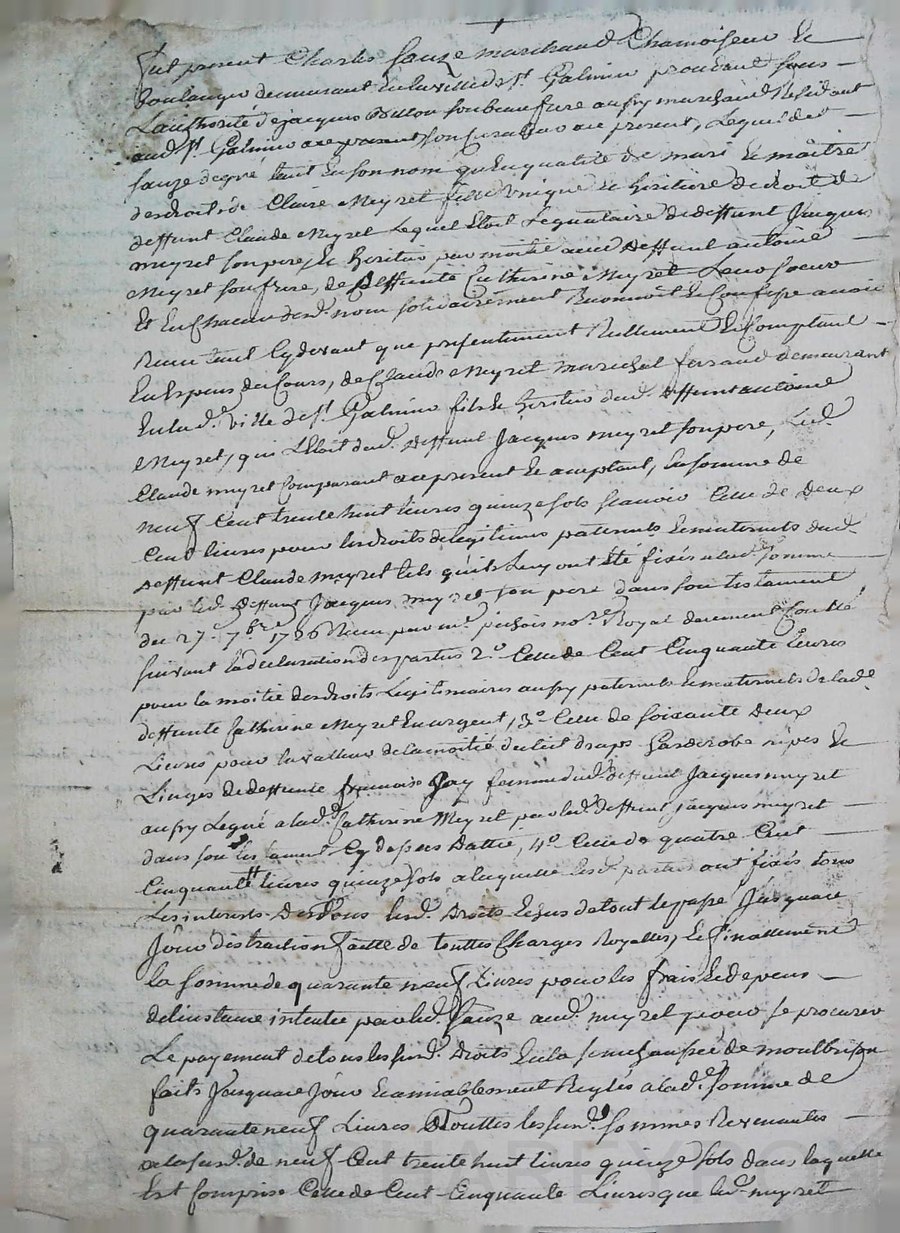 Fut present Charles Sauze marchand Chamoiseur et
Boulanger demeurant en la ville de st Galmier procedant sous
L'authorité de jacques Billon son beau frere aussy marchand Residant
aud. st Galmier son Curateur acy present, Lequel dit
Sauze degré tant En son nom qu'En qualité de mari Et maitre
des droits de Claire Meyret fille unique Et heritiere de droit de
deffunt Claude Meyret Lequel Etoit Légataire de deffunt Jacques
meyret son pere, Et heritier par moitié avec Deffunt antoine
Meyret son frere, de Deffunte Catherine Meyret Leur soeur
Et En Chacun desd. nom solidairement Reconnoit Et Confesse avoir
Receu tant Cy devant que presentement Reellement Et Comptant
En Especes de Cours, de Claude Meyret marechal ferrand demeurant
En lad. ville de st Galmier fils Et heritier dud. Deffunt antoine
Meyret, qui L'Etoit dud. Deffunt Jacques meyret son pere, Led.
Claude meyret Comparant acy present Et acceptant, La somme de
neuf Cent trente huit Livres quinze sols scavoir Celle de Deux
Cent livres pour les droits de légitimes paternels Et maternels dud.
Deffunt Claude Meyret tels qu'ils Luy ont Eté fixés alad. somme
par led. Deffunt Jacques meyret son pere dans son testament
du 27e 7bre 1726 Receu par me. notre. Royal Controllé
suivant la declaration des parties 2o Celle de Cent Cinquante Livres
pour la moitié des droits Legitimaires aussy paternels Et maternels de lade
deffunte Catherine Meyret En argent, 3o Celle de soixante Deux
Livres pour la valleur de la moitié du lit draps Garderobe nipes Et
Linges de deffunte francoise Jay femme dud. deffunt Jacques meyret
aussy Legué alad. Catherine Meyret par led. Deffunt jacques meyret
dans son testament Cy dessus Datté, 4o Celle de quatre Cent
Cinquante Livres quinze sols a laquelle Lesd. parties ont fixés tous
Les interests Desd. Droits Echus de tout le passé Jusqu'a ce
Jour distraction faitte de touttes Charges Royalles, Et finallement
la somme de quarante neuf Livres pour les frais Et depens
de l'instance intentée par led. Sauze aud. meyret pour se procurer
Le payement de tous les susd. Droits En la senechaussée de montbrison
faits Jusqu'a ce Jour Et amiablement Reglés alade somme de
quarante neuf Livres Touttes les susd. sommes Revenantes
ala susd. de neuf Cent trente huit livres quinze sols dans laquelle
Est Comprise Celle de Cent Cinquante Livres que led. meyret